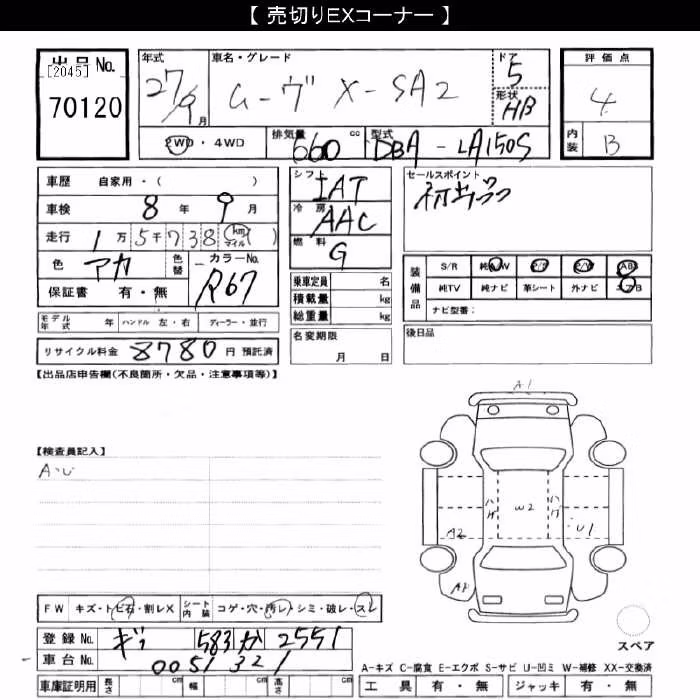 【 売切りEXコーナー 】
出品 No.
[2045]
70120
年式
27/9月
車名・グレード
ムーヴ X-SA2
ドア
5
形状
HB
評価点
4
内装
B
2WD・4WD
排気量
660 cc
型式
DBA-LA150S
車歴 自家用・( )
車検 8年 9月
走行 1万5千738 ( km マイル )
色 アカ
色替
カラーNo.
R67
保証書 有・無
シフト
IAT
冷房
AAC
燃料
G
セールスポイント
乗車定員 名
積載量 kg
総重量 kg
装備品
S/R 純AW P/S P/W ABS
純TV 純ナビ 革シート 外ナビ エアB
ナビ型番:
モデル年式 年 ハンドル 左・右 ディーラー・並行
名変期限
月 日
後日品
リサイクル料金 8780 円 預託済
【出品店申告欄(不良箇所・欠品・注意事項等)】
【検査員記入】
A・U
A1
ハゲ
W2
ハゲ
U1
A2
FW キズ・トビ石・割レX
シート内装 コゲ・穴・汚レ・シミ・破レ・スレ
登録 No. 583 か 2551
車台 No. 0051321
車庫証明用 長さ cm 幅 cm 高さ cm
スペア
A-キズ C-腐食 E-エクボ S-サビ U-凹ミ W-補修 XX-交換済
工具 有・無 ジャッキ 有・無